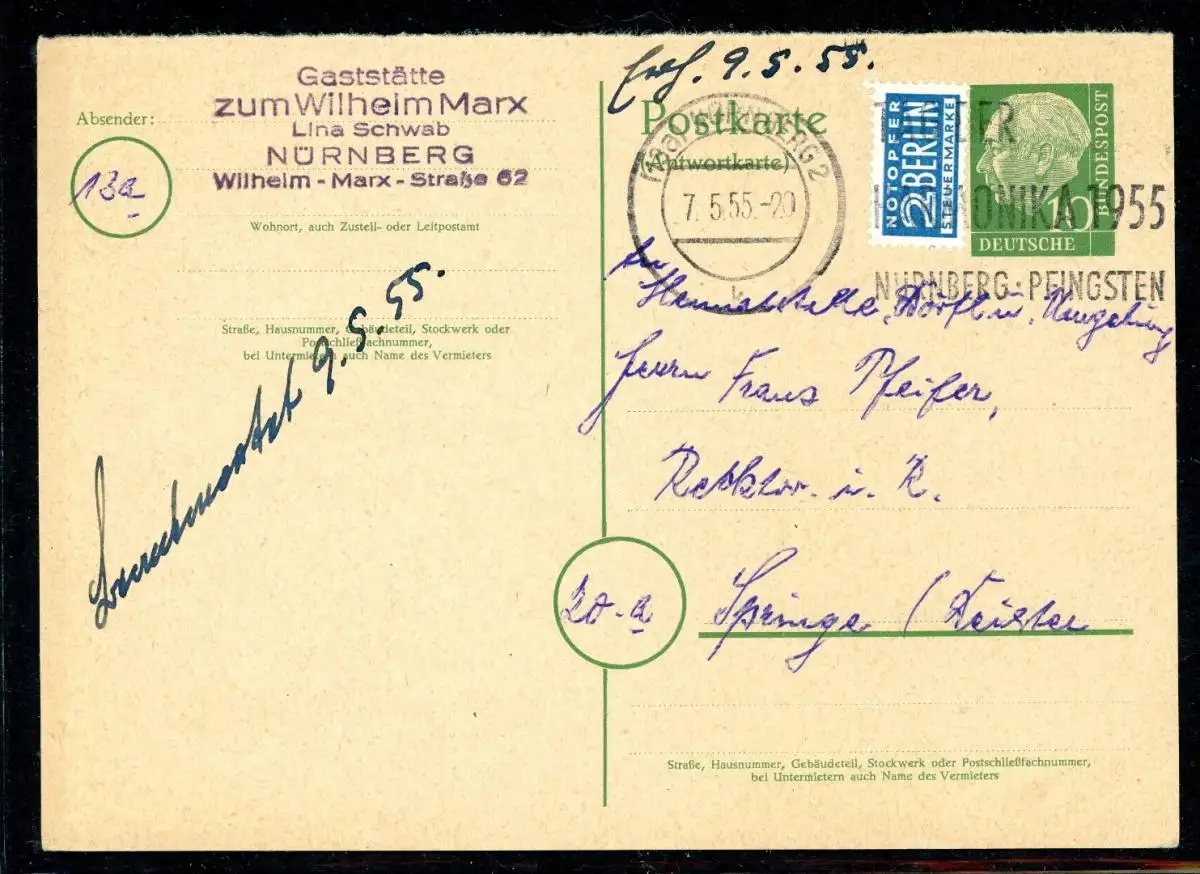 Absender:
Gaststätte
zum Wilhelm Marx
Lina Schwab
NÜRNBERG
Wilhelm - Marx - Straße 62
13a
Wohnort, auch Zustell- oder Leitpostamt
Straße, Hausnummer, Gebäudeteil, Stockwerk oder
Postschließfachnummer,
bei Untermietern auch Name des Vermieters
9.5.55.
9.5.55.
Postkarte
(Antwortkarte)
NÜRNBERG 2
7.5.55.-20
k
NOTOPFER
2 BERLIN
STEUERMARKE
10
DEUTSCHE
BUNDESPOST
1955
NÜRNBERG: PFINGSTEN
Heimatstelle Dörfl u. Umgebung
Herrn Franz Pfeifer,
Rektor i. R.
20-a
Springe / Deister
Straße, Hausnummer, Gebäudeteil, Stockwerk oder Postschließfachnummer,
bei Untermietern auch Name des Vermieters